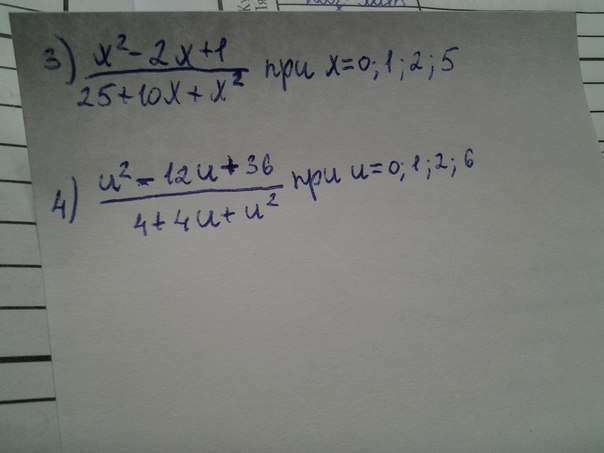 3) x² - 2x + 1 / 25 + 10x + x² при x = 0; 1; 2; 5
4) u² - 12u + 36 / 4 + 4u + u² при u = 0; 1; 2; 6